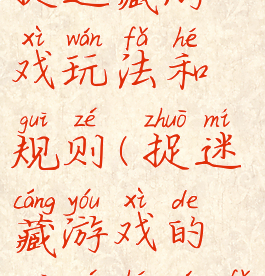 xì wán fǎ hé
戏玩法和
guī zé zhuō mí
规则(捉迷
cáng yóu xì de
藏游戏的